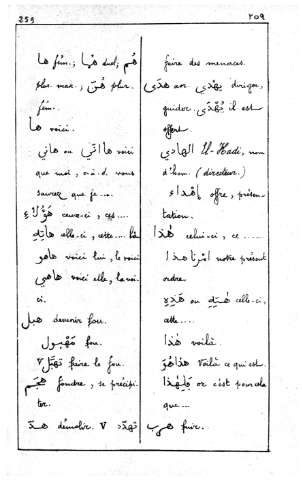 259
٢٥٩
ها fém.; هما duel; هُم
plur. masc., هُنّ plur.
fém.
ها voici.
هاني ou هااني voici
que moi, c.à.d. vous
saurez que je ....
هَؤُلاَءِ ceux-ci, ces ....
هاته celle-ci, cette ....
هاهو voici lui, le voici
هاهي voici elle, la voi-
ci.
هبل devenir fou.
مهبول fou.
تهبّل V faire le fou.
هجم fondre, se précipi-
ter.
هدّ démolir. V تهدّد
faire des menaces.
هدى aor. يهدي diriger,
guider. هُدى il est
offert.
الهادي El-Hadi, nom
d'hom. (directeur.)
إهداء offre, présen-
tation.
هذا celui-ci, ce ......
امرنا هذا notre présent
ordre.
هذه ou هته celle-ci,
cette ....
هذا voilà.
هذاهو voilà ce qui est.
فلهذا or c'est pour cela
que ....
هرب fuir.